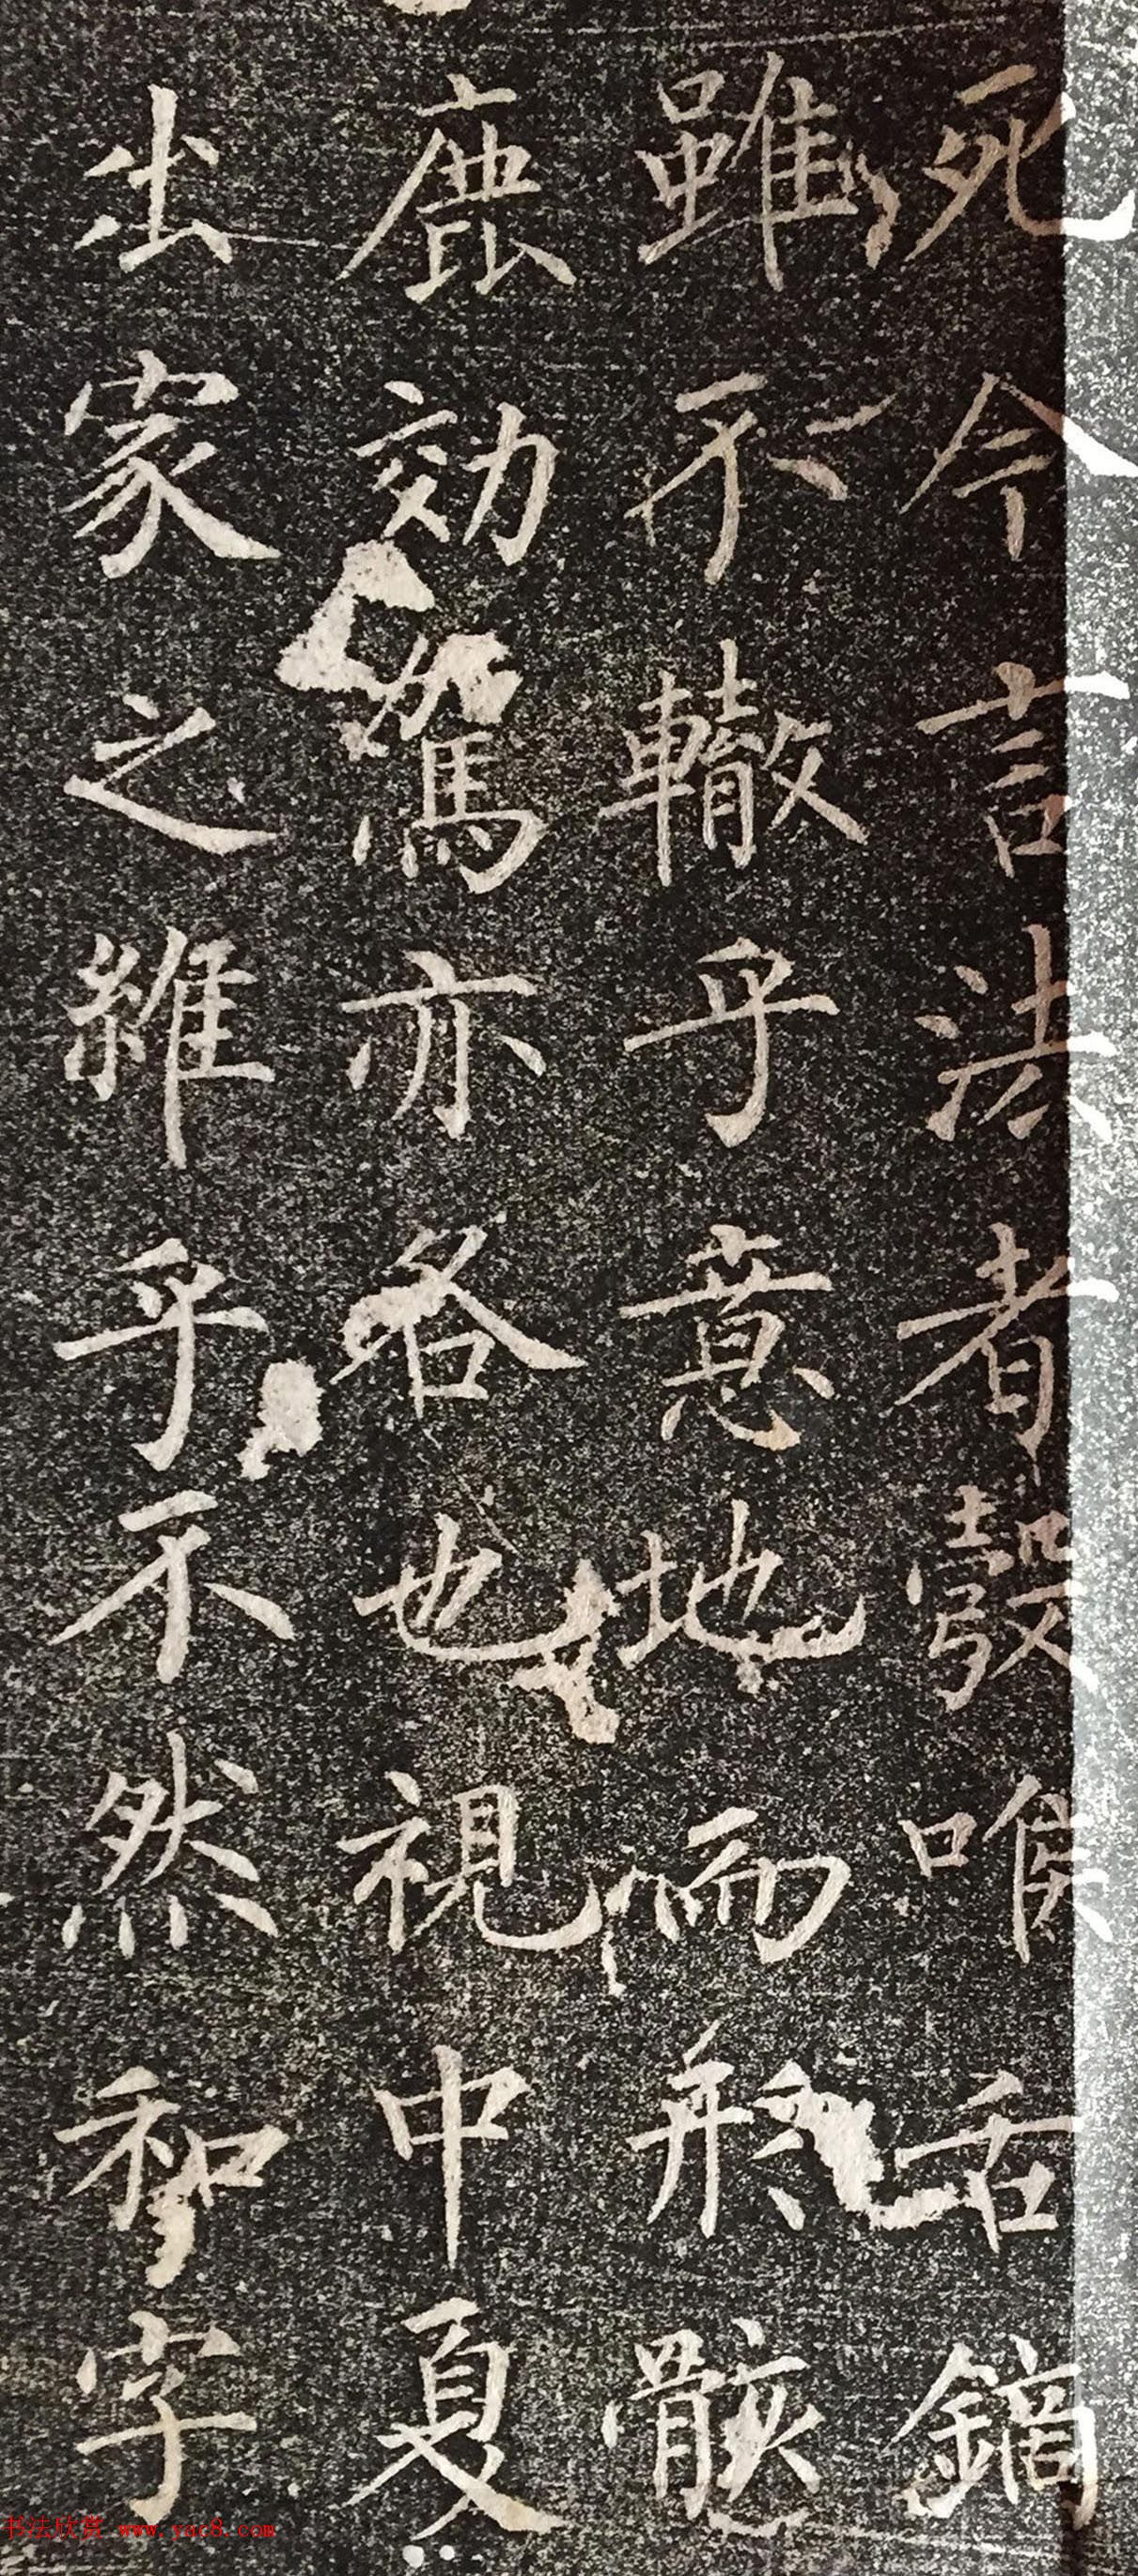 死今言法者彀喉舌鏑
雖不轍乎意地而形骸
麁効駕亦各也視中夏
出家之雖乎不然初字
书法欣赏 www.yac8.com